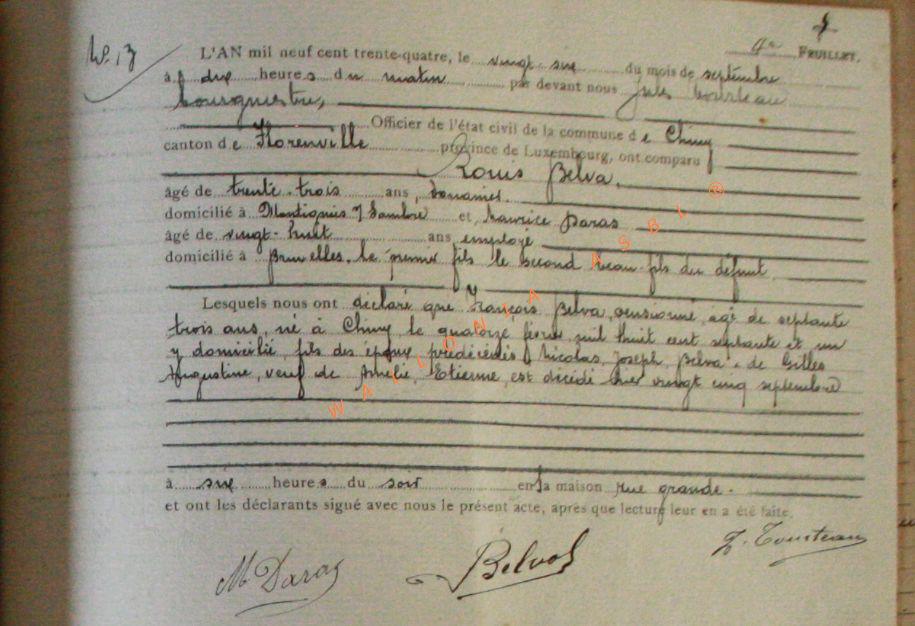 N. 13
4e FEUILLET.
L'AN mil neuf cent trente-quatre, le vingt-six du mois de septembre
à dix heures du matin par devant nous Jules
bourgmestre,
Officier de l'état civil de la commune de Chiny
canton de Florenville province de Luxembourg, ont comparu
Louis Belva,
âgé de trente-trois ans, douanier
domicilié à Montignies s/ Sambre et Maurice Daras
âgé de vingt-huit ans, employé
domicilié à Bruxelles. le premier fils le second beau-fils du défunt
Lesquels nous ont déclaré que François Belva, pensionné, agé de septante
trois ans, né à Chiny le quatorze mil huit cent septante et un
y domicilié, fils des époux prédécédés Nicolas Joseph Belva & de Gilles
Augustine, veuf de Amélie Etienne, est décédé hier vingt cinq septembre
à six heures du soir en sa maison rue grande.
et ont les déclarants signé avec nous le présent acte, après que lecture leur en a été faite.
M Daras Belva
WALLONIA ASBL ®